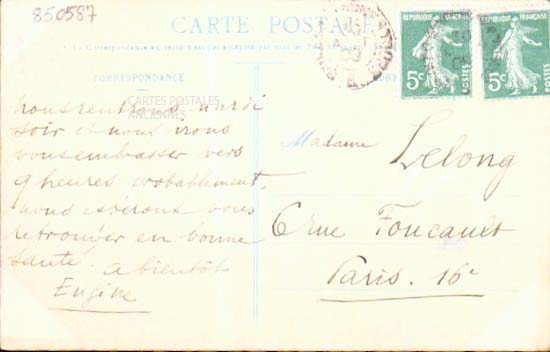 850587
CARTE POSTALE
CORRESPONDANCE
CARTES POSTALES
ANCIENNES
nous rentrons mardi
soir et nous irons
vous embrasser vers
9 heures probablement.
nous espérons vous
retrouver en bonne
santé. a bientôt
Eugène
Madame Lelong
6 rue Foucault
Paris. 16e
5c
POSTES
5c
POSTES